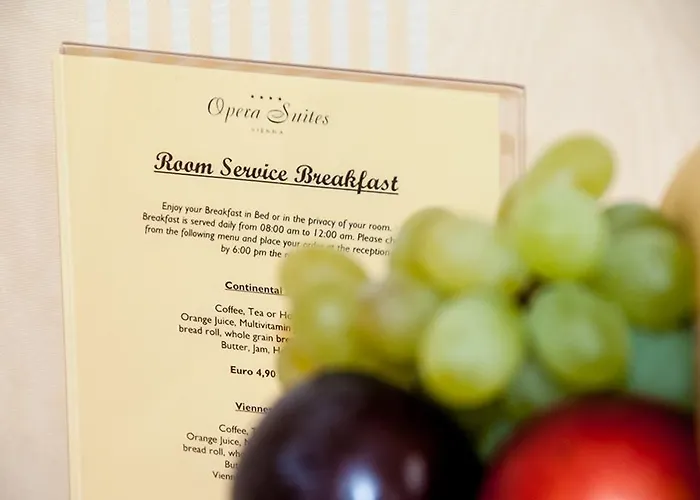 Opera Suites
VIENNA
Room Service Breakfast
Enjoy your Breakfast in Bed or in the privacy of your room.
Breakfast is served daily from 08:00 am to 12:00 am. Please
from the following menu and place your the reception
by 6:00 pm the
Continental
Coffee, Tea or
Orange Juice, Multivitamin
bread roll, whole grain
Butter, Jam,
Euro 4,90
Coffee,
Orange Juice,
bread roll,